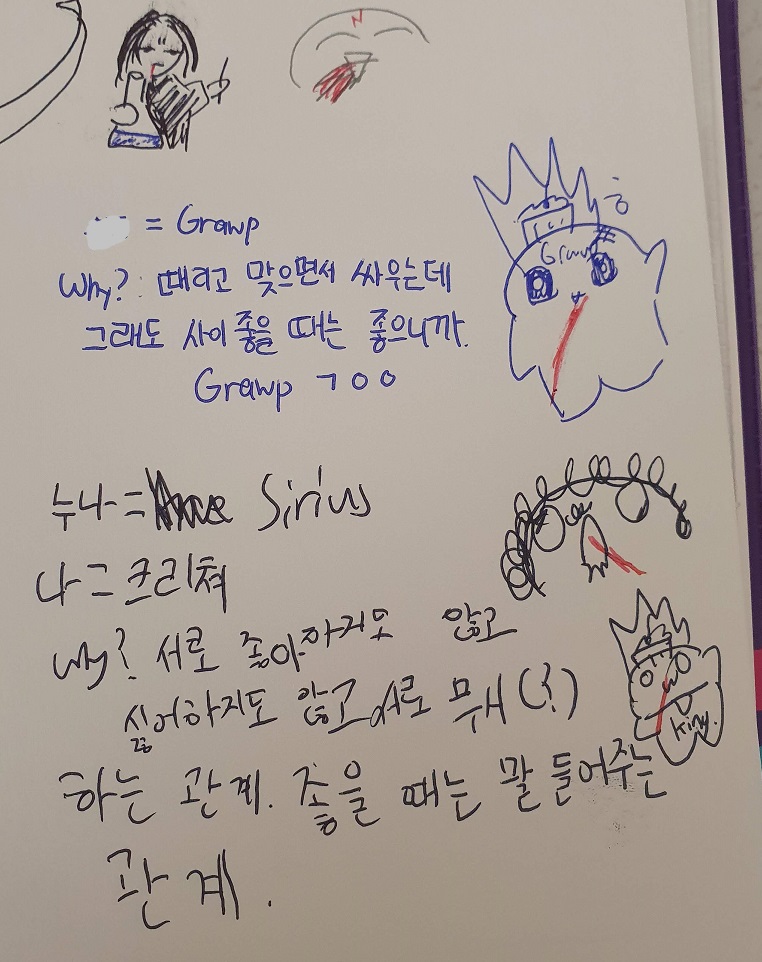 = Grawp
Why? : 때리고 맞으면서 싸우는데
그래도 사이 좋을 때는 좋으니까.
Grawp ㄱㅇㅇ
Grawp
ㅎ
누나 = Sirius
나 = 크리쳐
why? 서로 좋아하지도 않고
싫어하지도 않고 서로 무시(?)
하는 관계. 좋을 때는 말 들어주는
관계.
King.